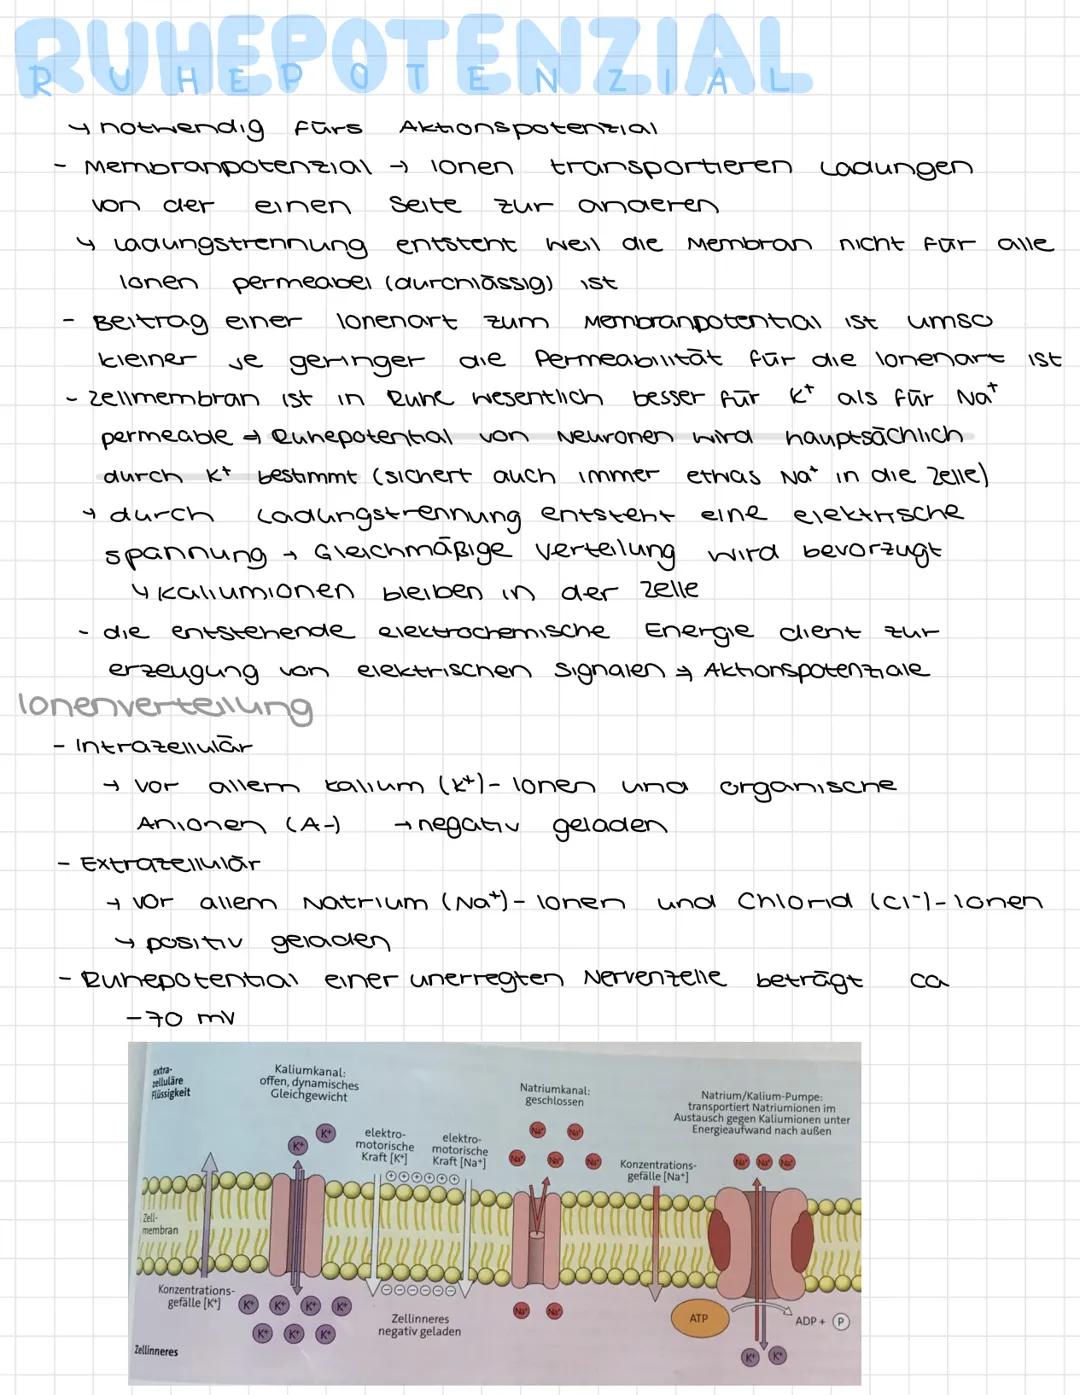 RUHEPOTENZIAL
RUHEPOTENZIAL
↳ notwendig fürs Aktionspotenzial
- Membranpotenzial → Ionen transportieren Ladungen
von der einen Seite zur anderen
↳ Ladungstrennung entsteht weil die Membran nicht für alle
Ionen permeabel (durchlässig) ist
- Beitrag einer Ionenart zum Membranpotential ist umso
kleiner je geringer die Permeabilität für die Ionenart ist
- Zellmembran ist in Ruhe wesentlich besser für K⁺ als für Na⁺
permeable → Ruhepotential von Neuronen wird hauptsächlich
durch K⁺ bestimmt (sichert auch immer etwas Na⁺ in die Zelle)
↳ durch Ladungstrennung entsteht eine elektrische
spannung → Gleichmäßige Verteilung wird bevorzugt
↳ Kaliumionen bleiben in der Zelle
- die entstehende elektrochemische Energie dient zur
erzeugung von elektrischen Signalen → Aktionspotenziale
Ionenverteilung
- Intrazellulär
→ vor allem Kalium (K⁺)- Ionen und organische
Anionen (A-) → negativ geladen
- Extrazellulär
→ vor allem Natrium (Na⁺)- Ionen und Chlorid (Cl⁻)-Ionen
↳ positiv geladen
- Ruhepotential einer unerregten Nervenzelle beträgt ca
-70 mV
extra-
zelluläre
Flüssigkeit
Kaliumkanal:
offen, dynamisches
Gleichgewicht
elektro-
motorische
Kraft [K⁺]
elektro-
motorische
Kraft [Na⁺]
Natriumkanal:
geschlossen
Konzentrations-
gefälle [Na⁺]
Natrium/Kalium-Pumpe:
transportiert Natriumionen im
Austausch gegen Kaliumionen unter
Energieaufwand nach außen
K⁺ K⁺
Na⁺ Na⁺
Na⁺ Na⁺ Na⁺
Na⁺ Na⁺ Na⁺
Zell-
membran
Konzentrations-
gefälle [K⁺]
K⁺ K⁺ K⁺ K⁺
K⁺ K⁺ K⁺
Zellinneres
negativ geladen
Na⁺ Na⁺
ATP
ADP + P
K⁺ K⁺
Zellinneres